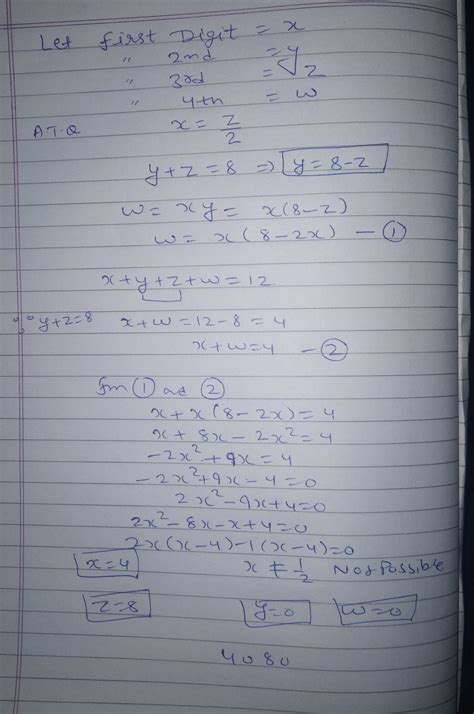 Let first Digit = x
" 2nd = y
" 3rd = z
" 4th = w
A.T.Q x = z/2
y+z=8 => y=8-z
w = xy = x(8-z)
w = x(8-2x) — ①
x+y+z+w=12
∵ y+z=8 x+w=12-8=4
x+w=4 — ②
fm ① ad ②
x+x(8-2x)=4
x+8x-2x²=4
-2x²+9x=4
-2x²+9x-4=0
2x²-9x+4=0
2x²-8x-x+4=0
2x(x-4)-1(x-4)=0
x=4 x≠1/2 Not Possible
z=8 y=0 w=0
4080